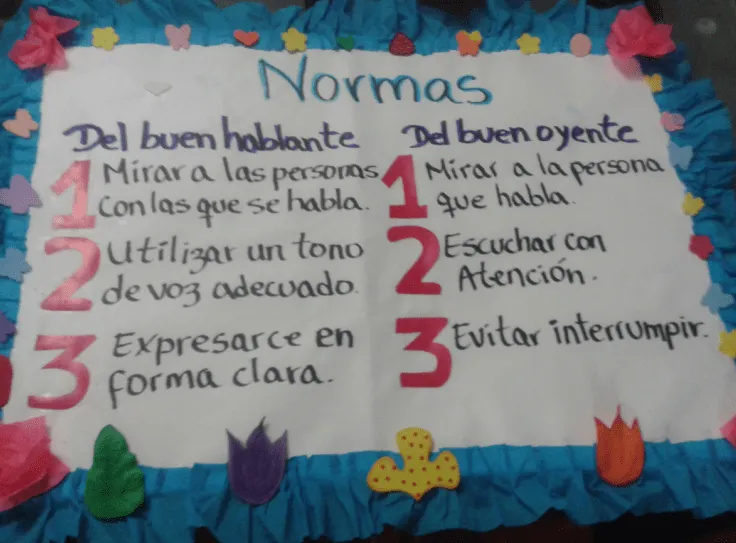 Normas
Del buen hablante
1 Mirar a las personas
con las que se habla.
2 Utilizar un tono
de voz adecuado.
3 Expresarce en
forma clara.
Del buen oyente
1 Mirar a la persona
que habla.
2 Escuchar con
Atención.
3 Evitar interrumpir.